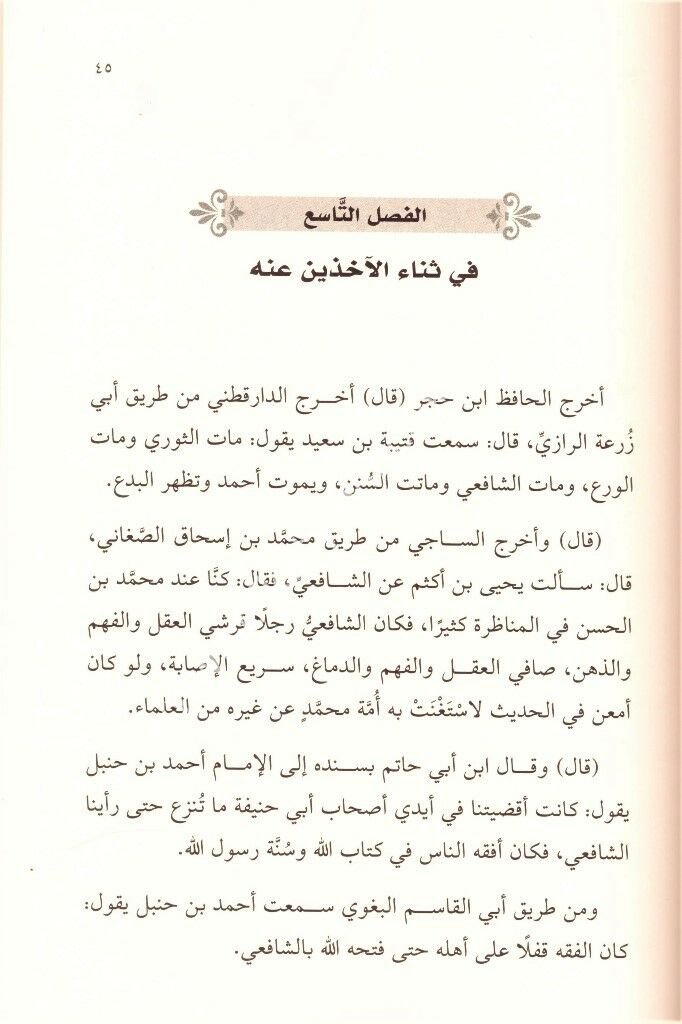 ٤٥
الفصل التَّاسع
في ثناء الآخذين عنه
أخرج الحافظ ابن حجر (قال) أخرج الدارقطني من طريق أبي
زُرعة الرازيِّ، قال: سمعت قتيبة بن سعيد يقول: مات الثوري ومات
الورع، ومات الشافعي وماتت السُنن، ويموت أحمد وتظهر البدع.
(قال) وأخرج الساجي من طريق محمَّد بن إسحاق الصَّغاني،
قال: سألت يحيى بن أكثم عن الشافعيِّ، فقال: كنَّا عند محمَّد بن
الحسن في المناظرة كثيرًا، فكان الشافعيُّ رجلًا قرشي العقل والفهم
والذهن، صافي العقل والفهم والدماغ، سريع الإصابة، ولو كان
أمعن في الحديث لاسْتَغْنَتْ به أُمَّة محمَّدٍ عن غيره من العلماء.
(قال) وقال ابن أبي حاتم بسنده إلى الإمام أحمد بن حنبل
يقول: كانت أقضيتنا في أيدي أصحاب أبي حنيفة ما تُنزع حتى رأينا
الشافعي، فكان أفقه الناس في كتاب الله وسُنَّة رسول الله.
ومن طريق أبي القاسم البغوي سمعت أحمد بن حنبل يقول:
كان الفقه قفلًا على أهله حتى فتحه الله بالشافعي.